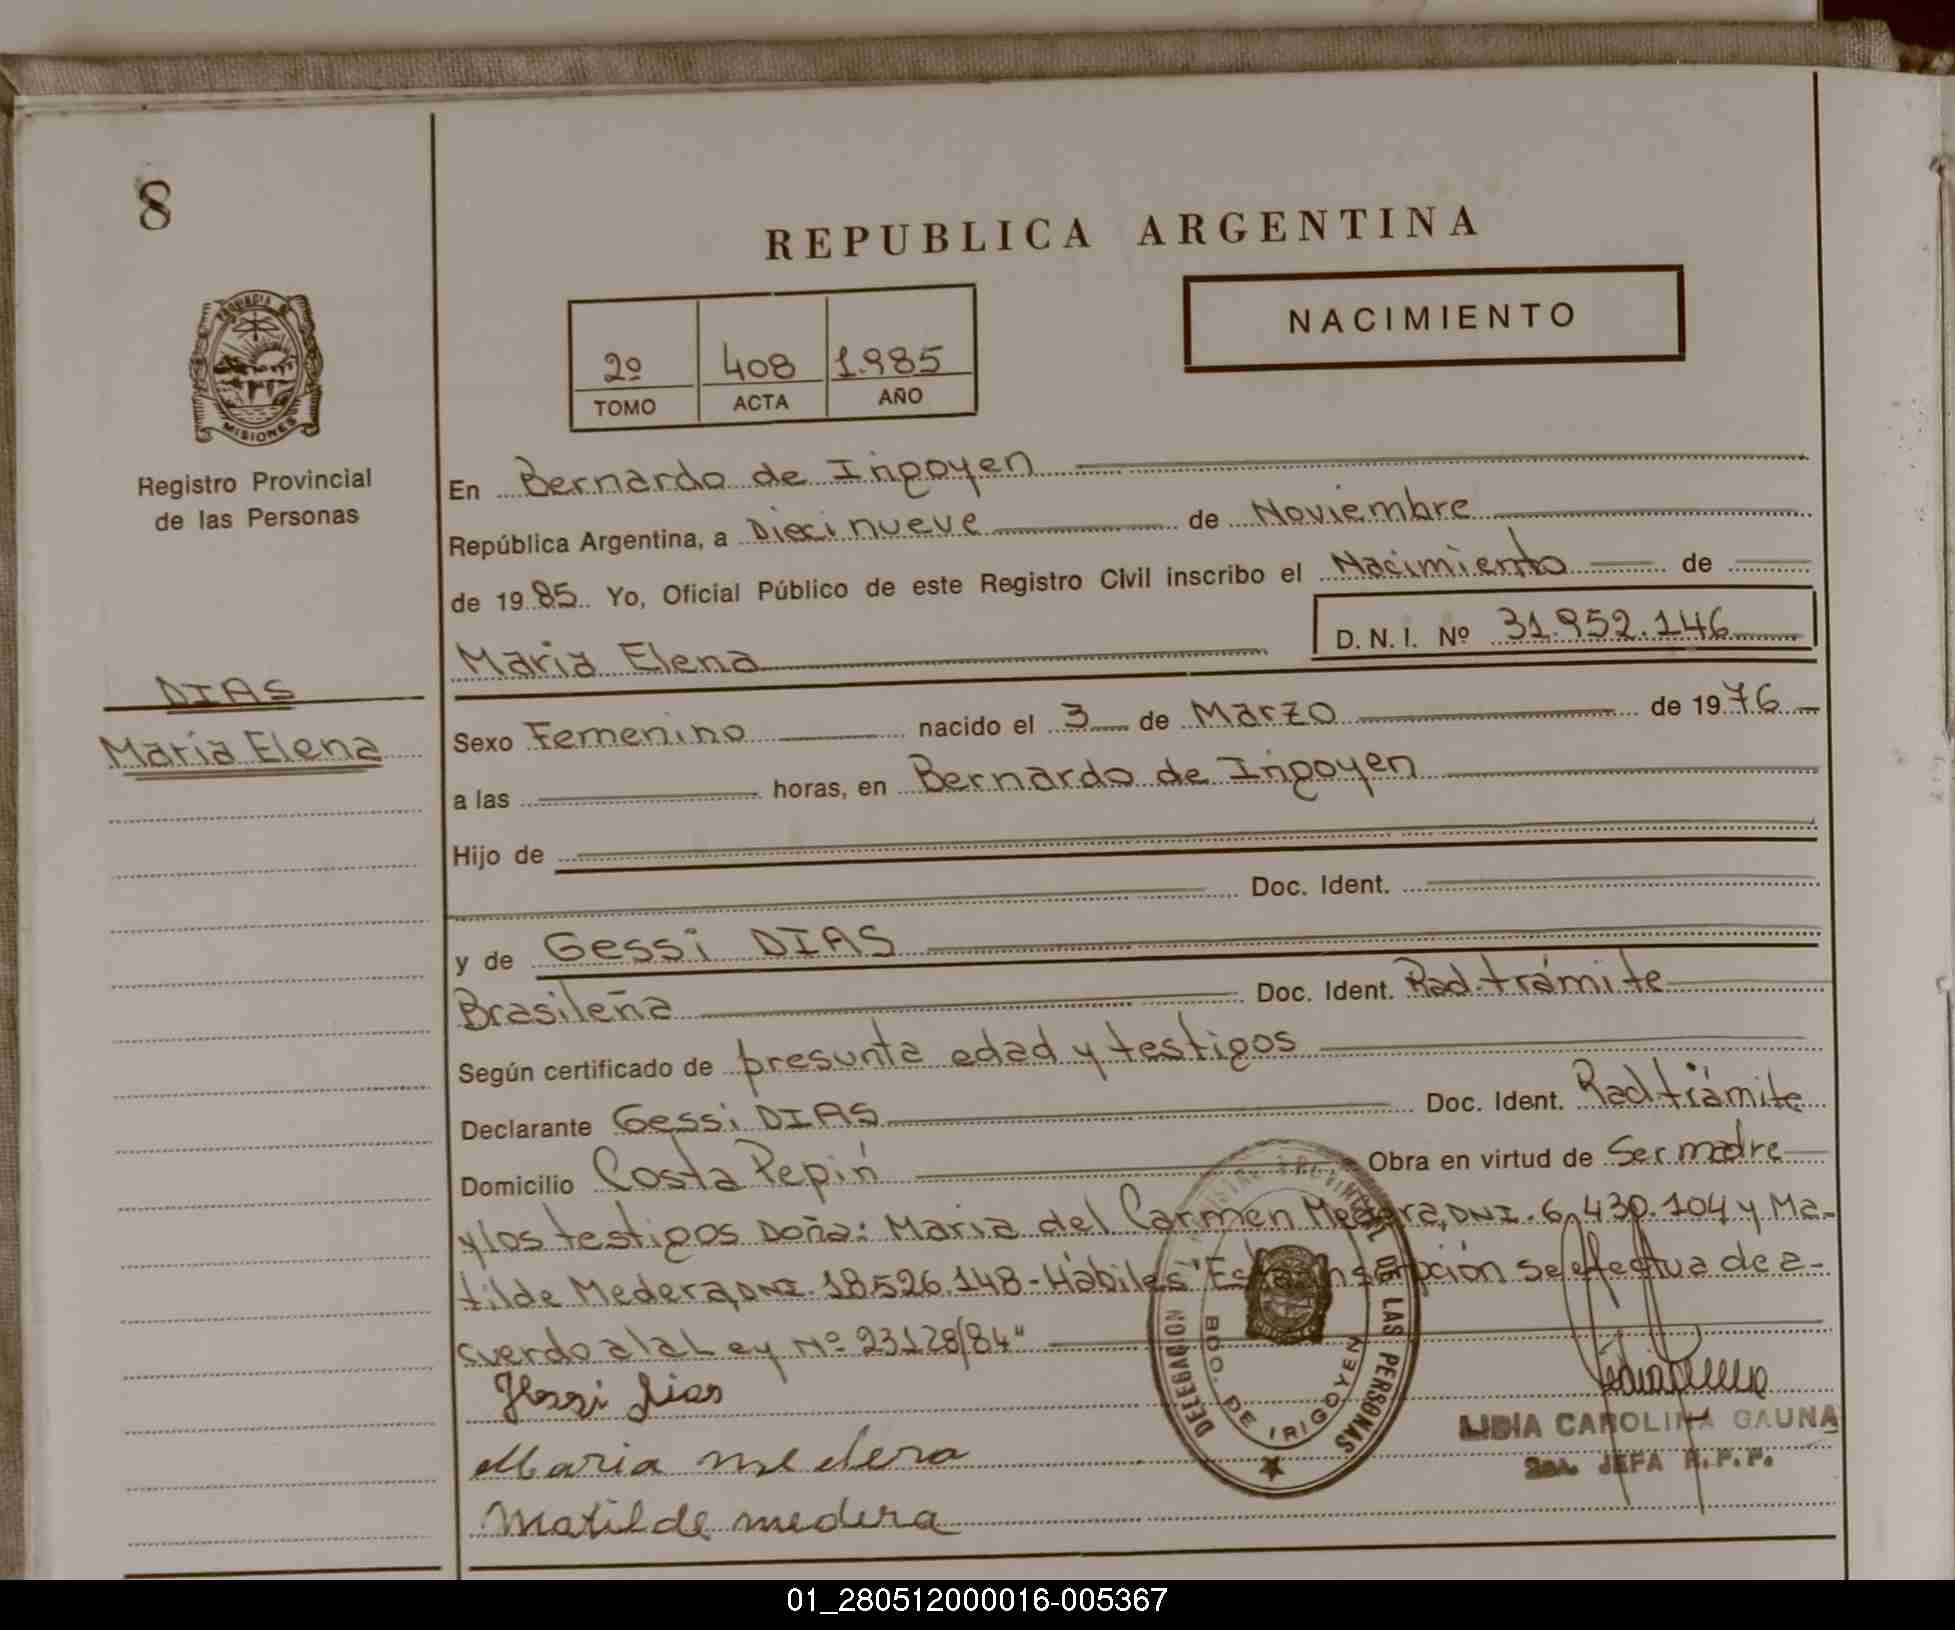 8
REPUBLICA ARGENTINA
NACIMIENTO
2º 408 1.985
TOMO ACTA AÑO
PROVINCIA DE
MISIONES
Registro Provincial
de las Personas
DIAS
Maria Elena
En Bernardo de Irigoyen
República Argentina, a Diecinueve de Noviembre
de 1985. Yo, Oficial Público de este Registro Civil inscribo el Nacimiento de
Maria Elena D. N. I. Nº 31.952.146
Sexo Femenino nacido el 3 de Marzo de 1976
a las horas, en Bernardo de Irigoyen
Hijo de
Doc. Ident.
y de Gessi DIAS
Brasileña Doc. Ident. Rad. trámite
Según certificado de presunta edad y testigos
Declarante Gessi DIAS Doc. Ident. Rad trámite
Domicilio Costa Pepirí Obra en virtud de Ser madre
y los testigos Doña: Maria del Carmen Medera, DNI. 6.430.104 y Ma-
tilde Medera, DNI. 18.526.148 - Hábiles "Esta inscripción se efectua de a-
cuerdo a la Ley Nº 23128/84"
Gessi Dias
Maria medera
Matilde medera
DELEGACION
DE LAS PERSONAS
BDO. DE IRIGOYEN
LIDIA CAROLINA GAUNA
2da. JEFA R.P.P.
01_280512000016-005367